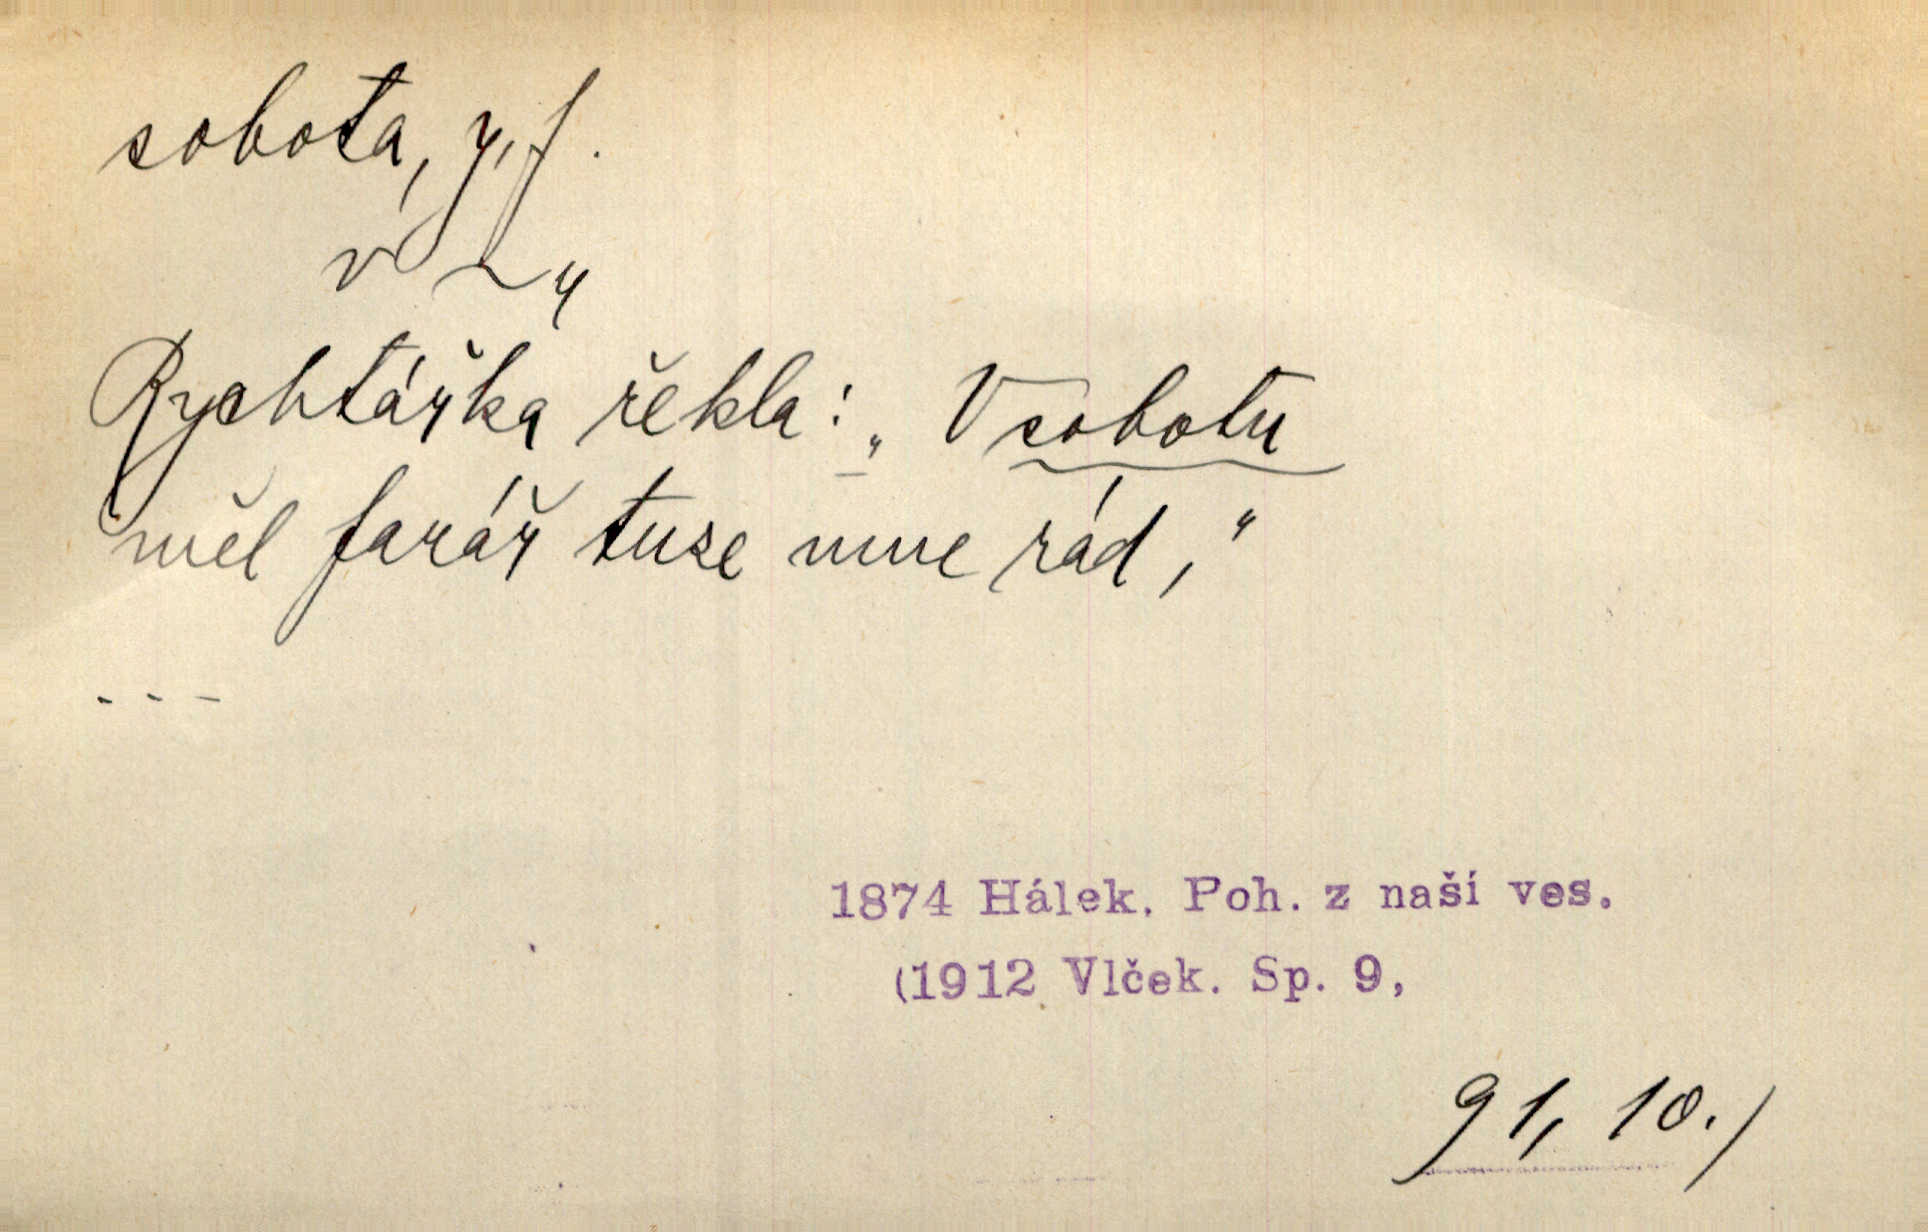 sobota, y, f.
v ~ u
Rychtářka řekla: „V sobotu
měl farář tuze mne rád,“
- - -
1874 Hálek. Poh. z naší ves.
(1912 Vlček. Sp. 9,
91, 10.)